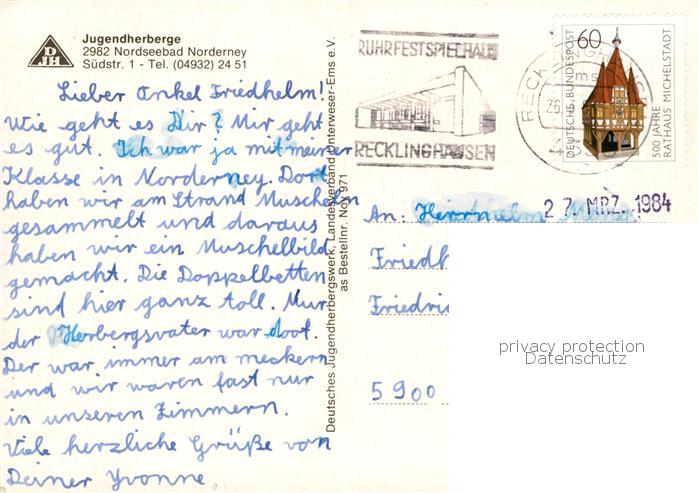 Jugendherberge
2982 Nordseebad Norderney
Südstr. 1 - Tel. (04932) 24 51
DJH
Lieber Onkel Friedhelm!
Wie geht es Dir? Mir geht
es gut. Ich war ja mit meiner
Klasse in Norderney. Dort
haben wir am Strand Muscheln
gesammelt und daraus
haben wir ein Muschelbild
gemacht. Die Doppelbetten
sind hier ganz toll. Nur
der Herbergsvater war doof.
Der war immer am meckern
und wir waren fast nur
in unseren Zimmern.
Viele herzliche Grüße von
Deiner Yvonne
Deutsches Jugendherbergswerk, Landesverband Unterweser-Ems e.V.
as Bestellnr. Noy 971
RUHRFESTSPIELHAUS
RECKLINGHAUSEN
RECKLINGHAUSEN
60
DEUTSCHE BUNDESPOST
500 JAHRE
RATHAUS MICHELSTADT
27. MRZ. 1984
An: Herrn
Friedh
Friedri
5900
privacy protection
Datenschutz